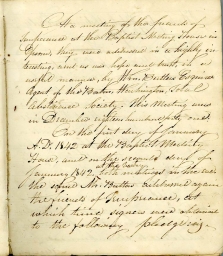 At a meeting of the friends of
Temperance at the Baptist Meeting House in
they were addressed in a highly
interesting and
useful manner, by Wm Button Esquire
Agent of the Boston Washington Total
Abstinence Society. This Meeting was
in December eighteen hundred forty one.
On the first day of January
A.D. 1842 at the Baptist Meeting
House, and on the seconds day of
January 1842, both meetings in
the said Mr Button addressed again
the friends of Temperance, at
which time signers were obtained
to the following pledge viz.